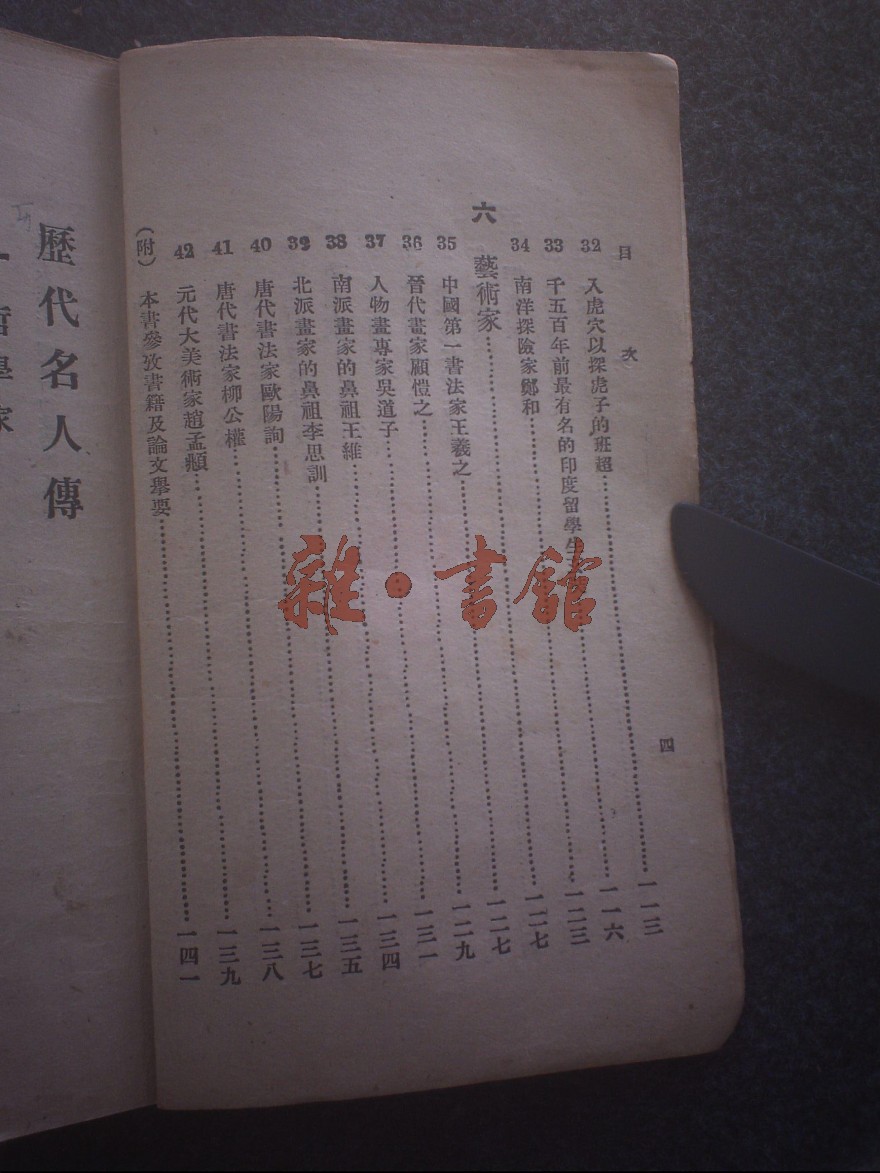 目次
四
32 入虎穴以探虎子的班超……一一三
33 千五百年前最有名的印度留學生……一一六
34 南洋探險家鄭和……一二三
六 藝術家……一二七
35 中國第一書法家王羲之……一二七
36 晉代畫家顧愷之……一二九
37 人物畫專家吳道子……一三一
38 南派畫家的鼻祖王維……一三四
39 北派畫家的鼻祖李思訓……一三五
40 唐代書法家歐陽詢……一三七
41 唐代書法家柳公權……一三八
42 元代大美術家趙孟頫……一三九
(附) 本書參攷書籍及論文舉要……一四一
歷代名人傳
一 哲學家
雜·書館